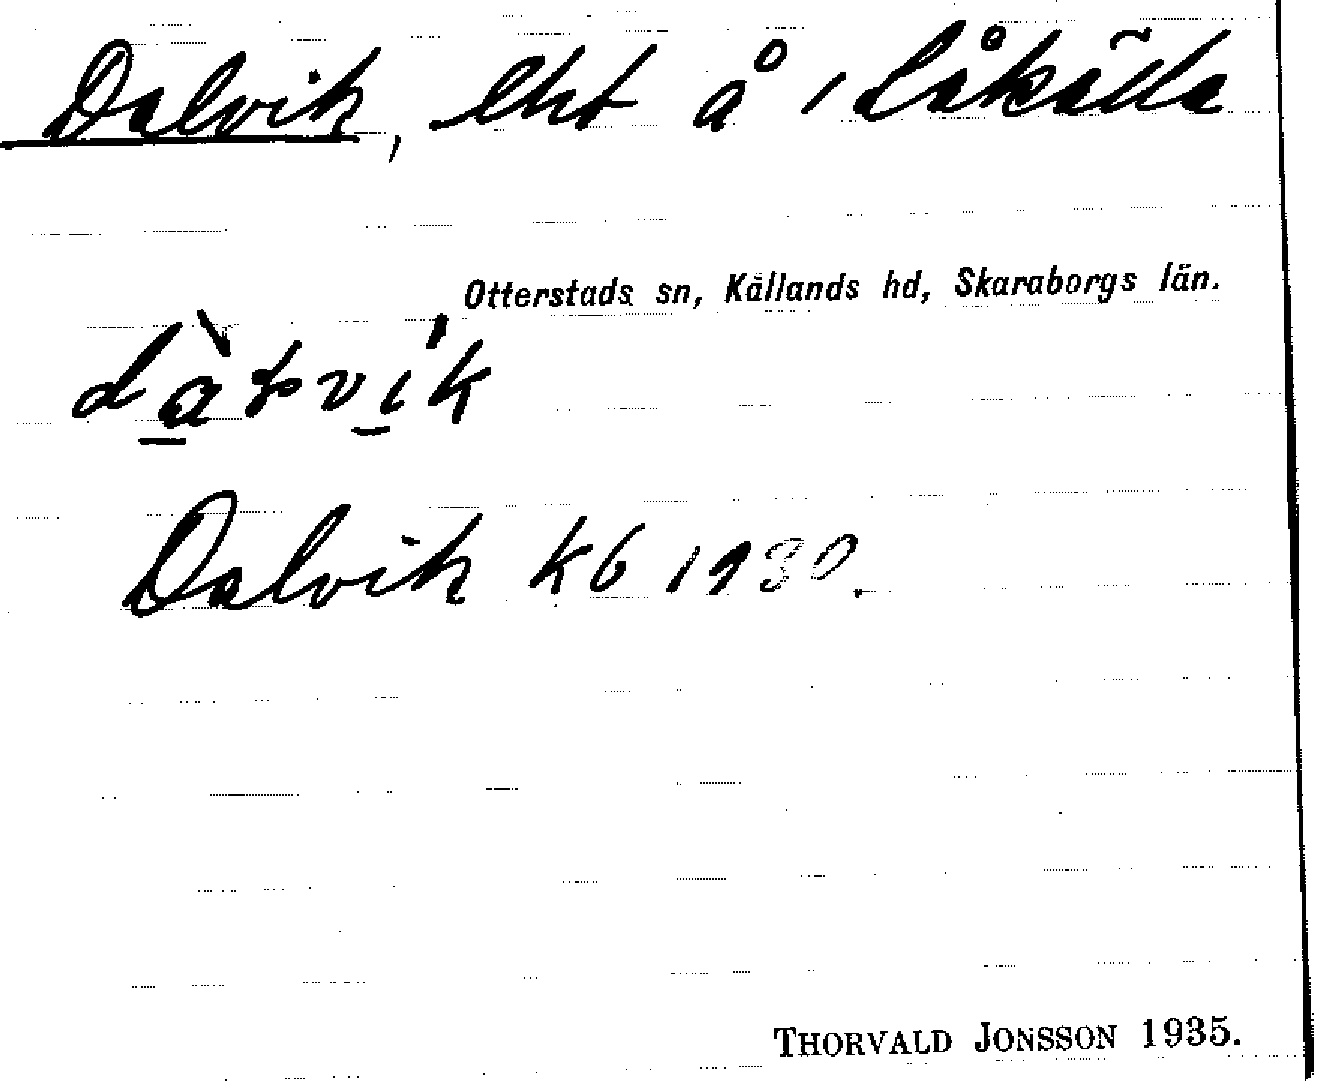 Dalvik, lht å 1 Låkälla
Otterstads sn, Kållands hd, Skaraborgs län.
Dalvik kb 1930.
THORVALD JONSSON 1935.